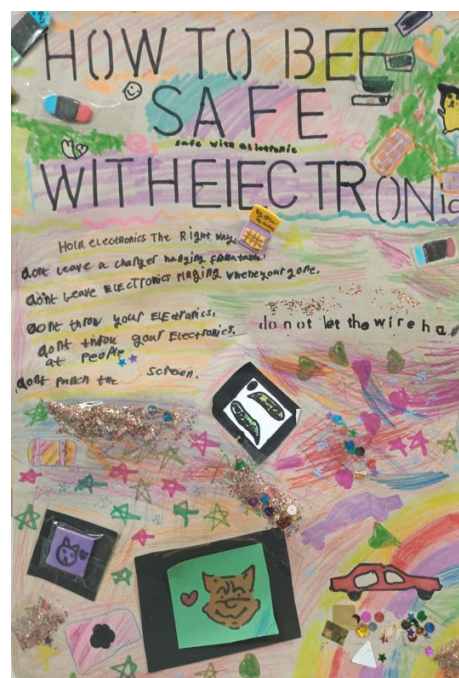 HOW TO BEE
SAFE
safe with electronic
WITH ElECTRONic
Hold electronics The Right way.
dont leave a charger hanging from table.
don't leave ELECTRONics ringing when your gone.
dont throw your ElEctronics.
dont throw your Electronics.
at people
dont punch the screen.
do not let the wire ha